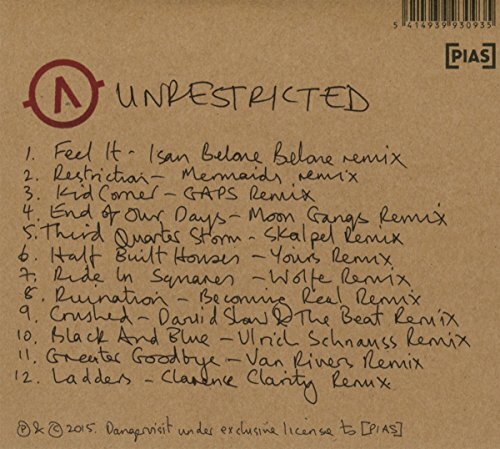 5 414939 930935
[PIAS]
UNRESTRICTED
1. Feel It - Isan Belone Belone remix
2. Restriction - Mermaids remix
3. Kid Corner - GAPS Remix
4. End of Our Days - Moon Gangs Remix
5. Third Quarter Storm - Skalpel Remix
6. Half Built Houses - Yours Remix
7. Ride In Squares - Wolfe Remix
8. Ruination - Becoming Real Remix
9. Crushed - David Slow & The Beat Remix
10. Black And Blue - Ulrich Schnauss Remix
11. Greater Goodbye - Van Rivers Remix
12. Ladders - Clarence Clarity Remix
℗ & © 2015. Dangervisit under exclusive license to [PIAS]